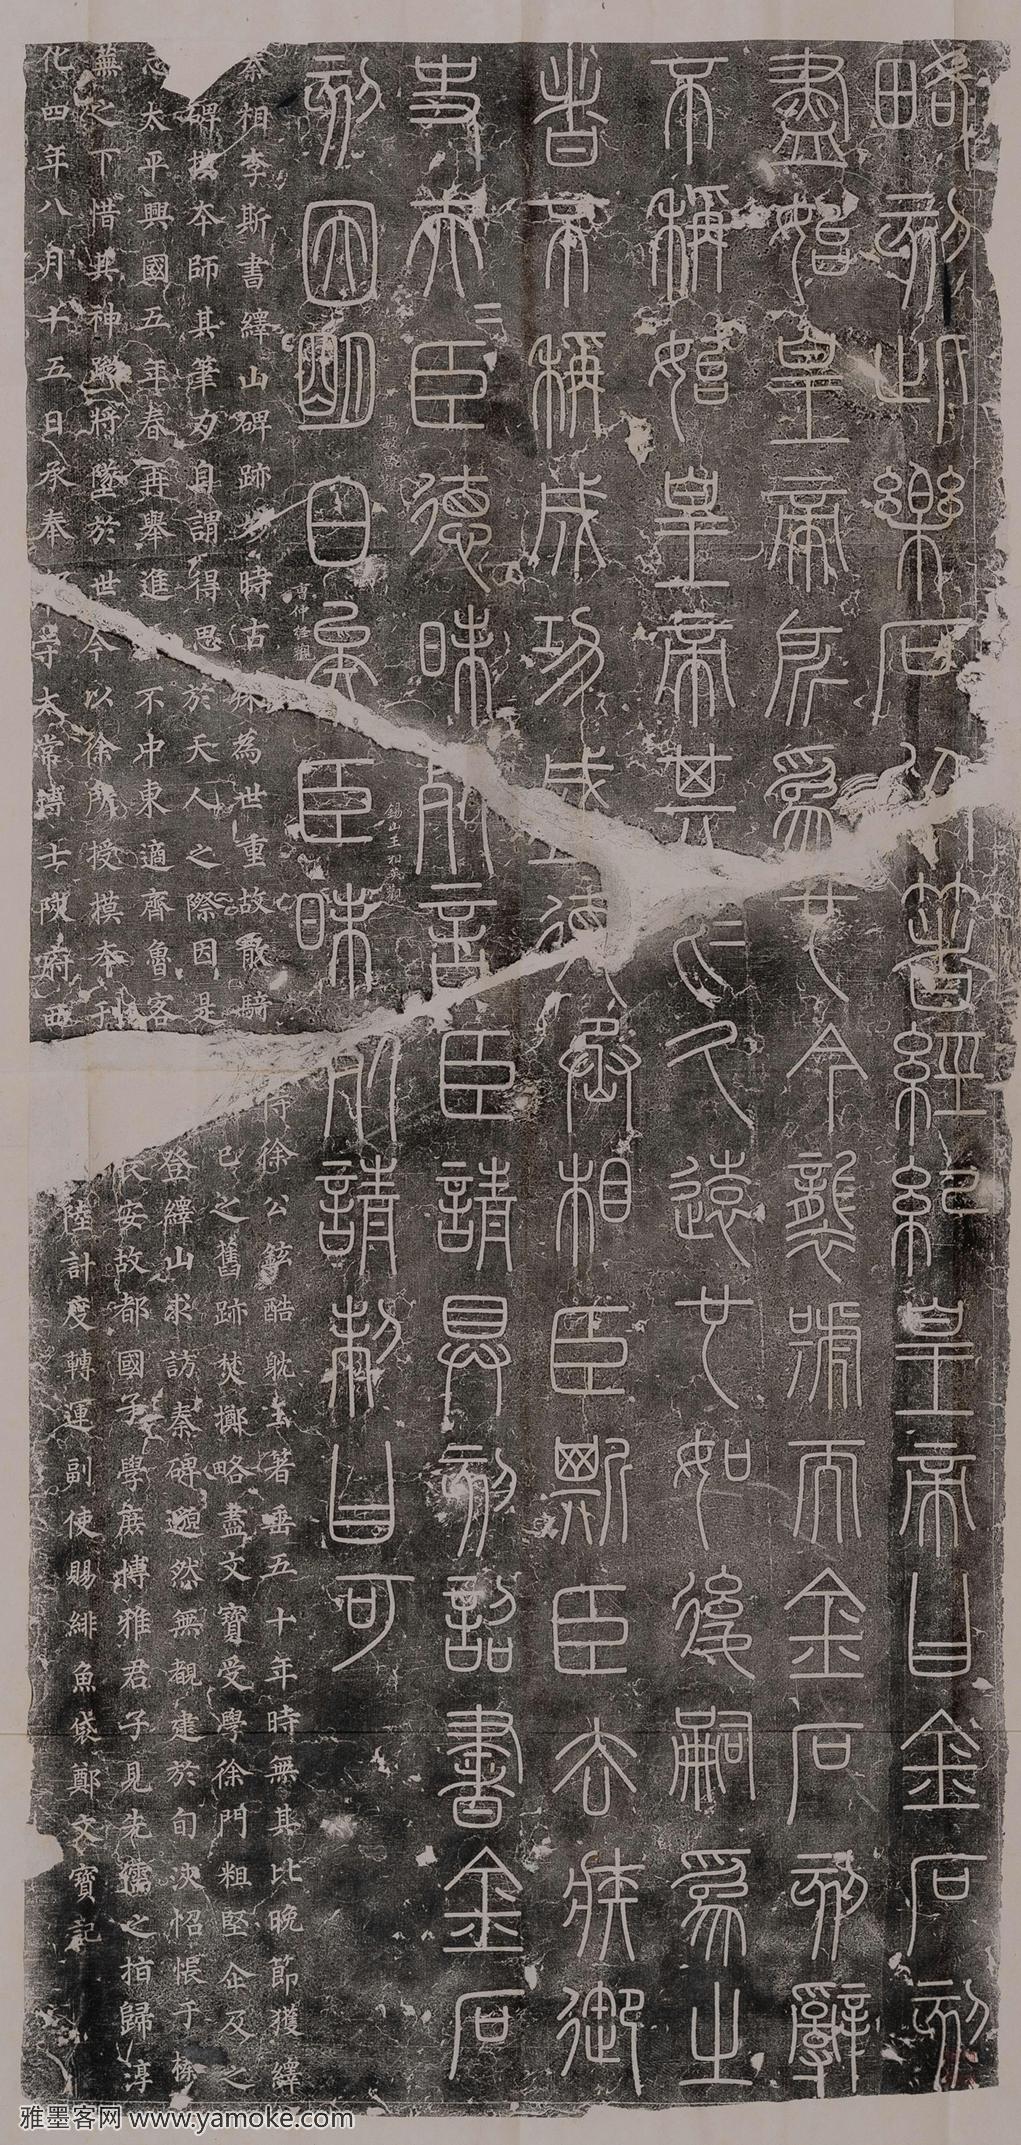 略刻此樂石以著經紀皇帝曰金石刻
盡始皇帝所為也今襲號而金石刻辭
不稱始皇帝其于久遠也如後嗣為之
者不稱成功盛德丞相臣斯臣去疾御
史夫=臣德昧死言臣請具刻詔書金石
刻因明白矣臣昧死請制曰可
曹仲謹觀
秦相李斯書繹山碑跡妙時古殊為世重故散騎常侍徐公鉉酷耽玉箸垂五十年時無其比晚節獲繹山
碑摸本師其筆力自謂得思於天人之際因是已之舊跡焚擲略盡文寶受學徐門粗堅企及之
志太平興國五年春再舉進士不中東適齊魯客登繹山求訪秦碑邈然無覩逮於旬浹怊悵于榛
蕪之下惜其神蹤將墜於世今以徐所授摸本刊石於長安故都國子學庶博雅君子見先儒之指歸淳
化四年八月十五日承奉郎守太常博士陝府西諸州水陸計度轉運副使賜緋魚袋鄭文寶記
雅墨客网 www.yamoke.com